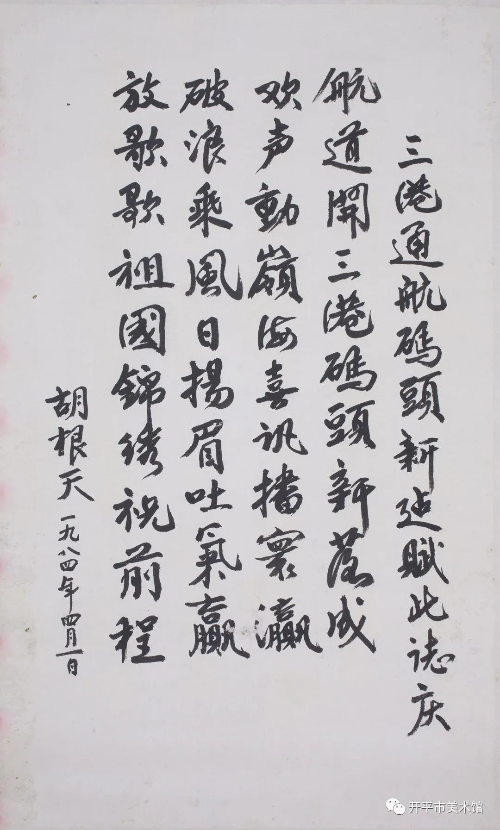 三港通航碼頭新迠賦此誌庆
航道開三港碼頭新落成
欢声動嶺海喜讯播寰瀛
破浪乘風日揚眉吐氣贏
放歌歌祖國錦绣祝前程
胡根天 一九八四年四月一日
开平市美术馆